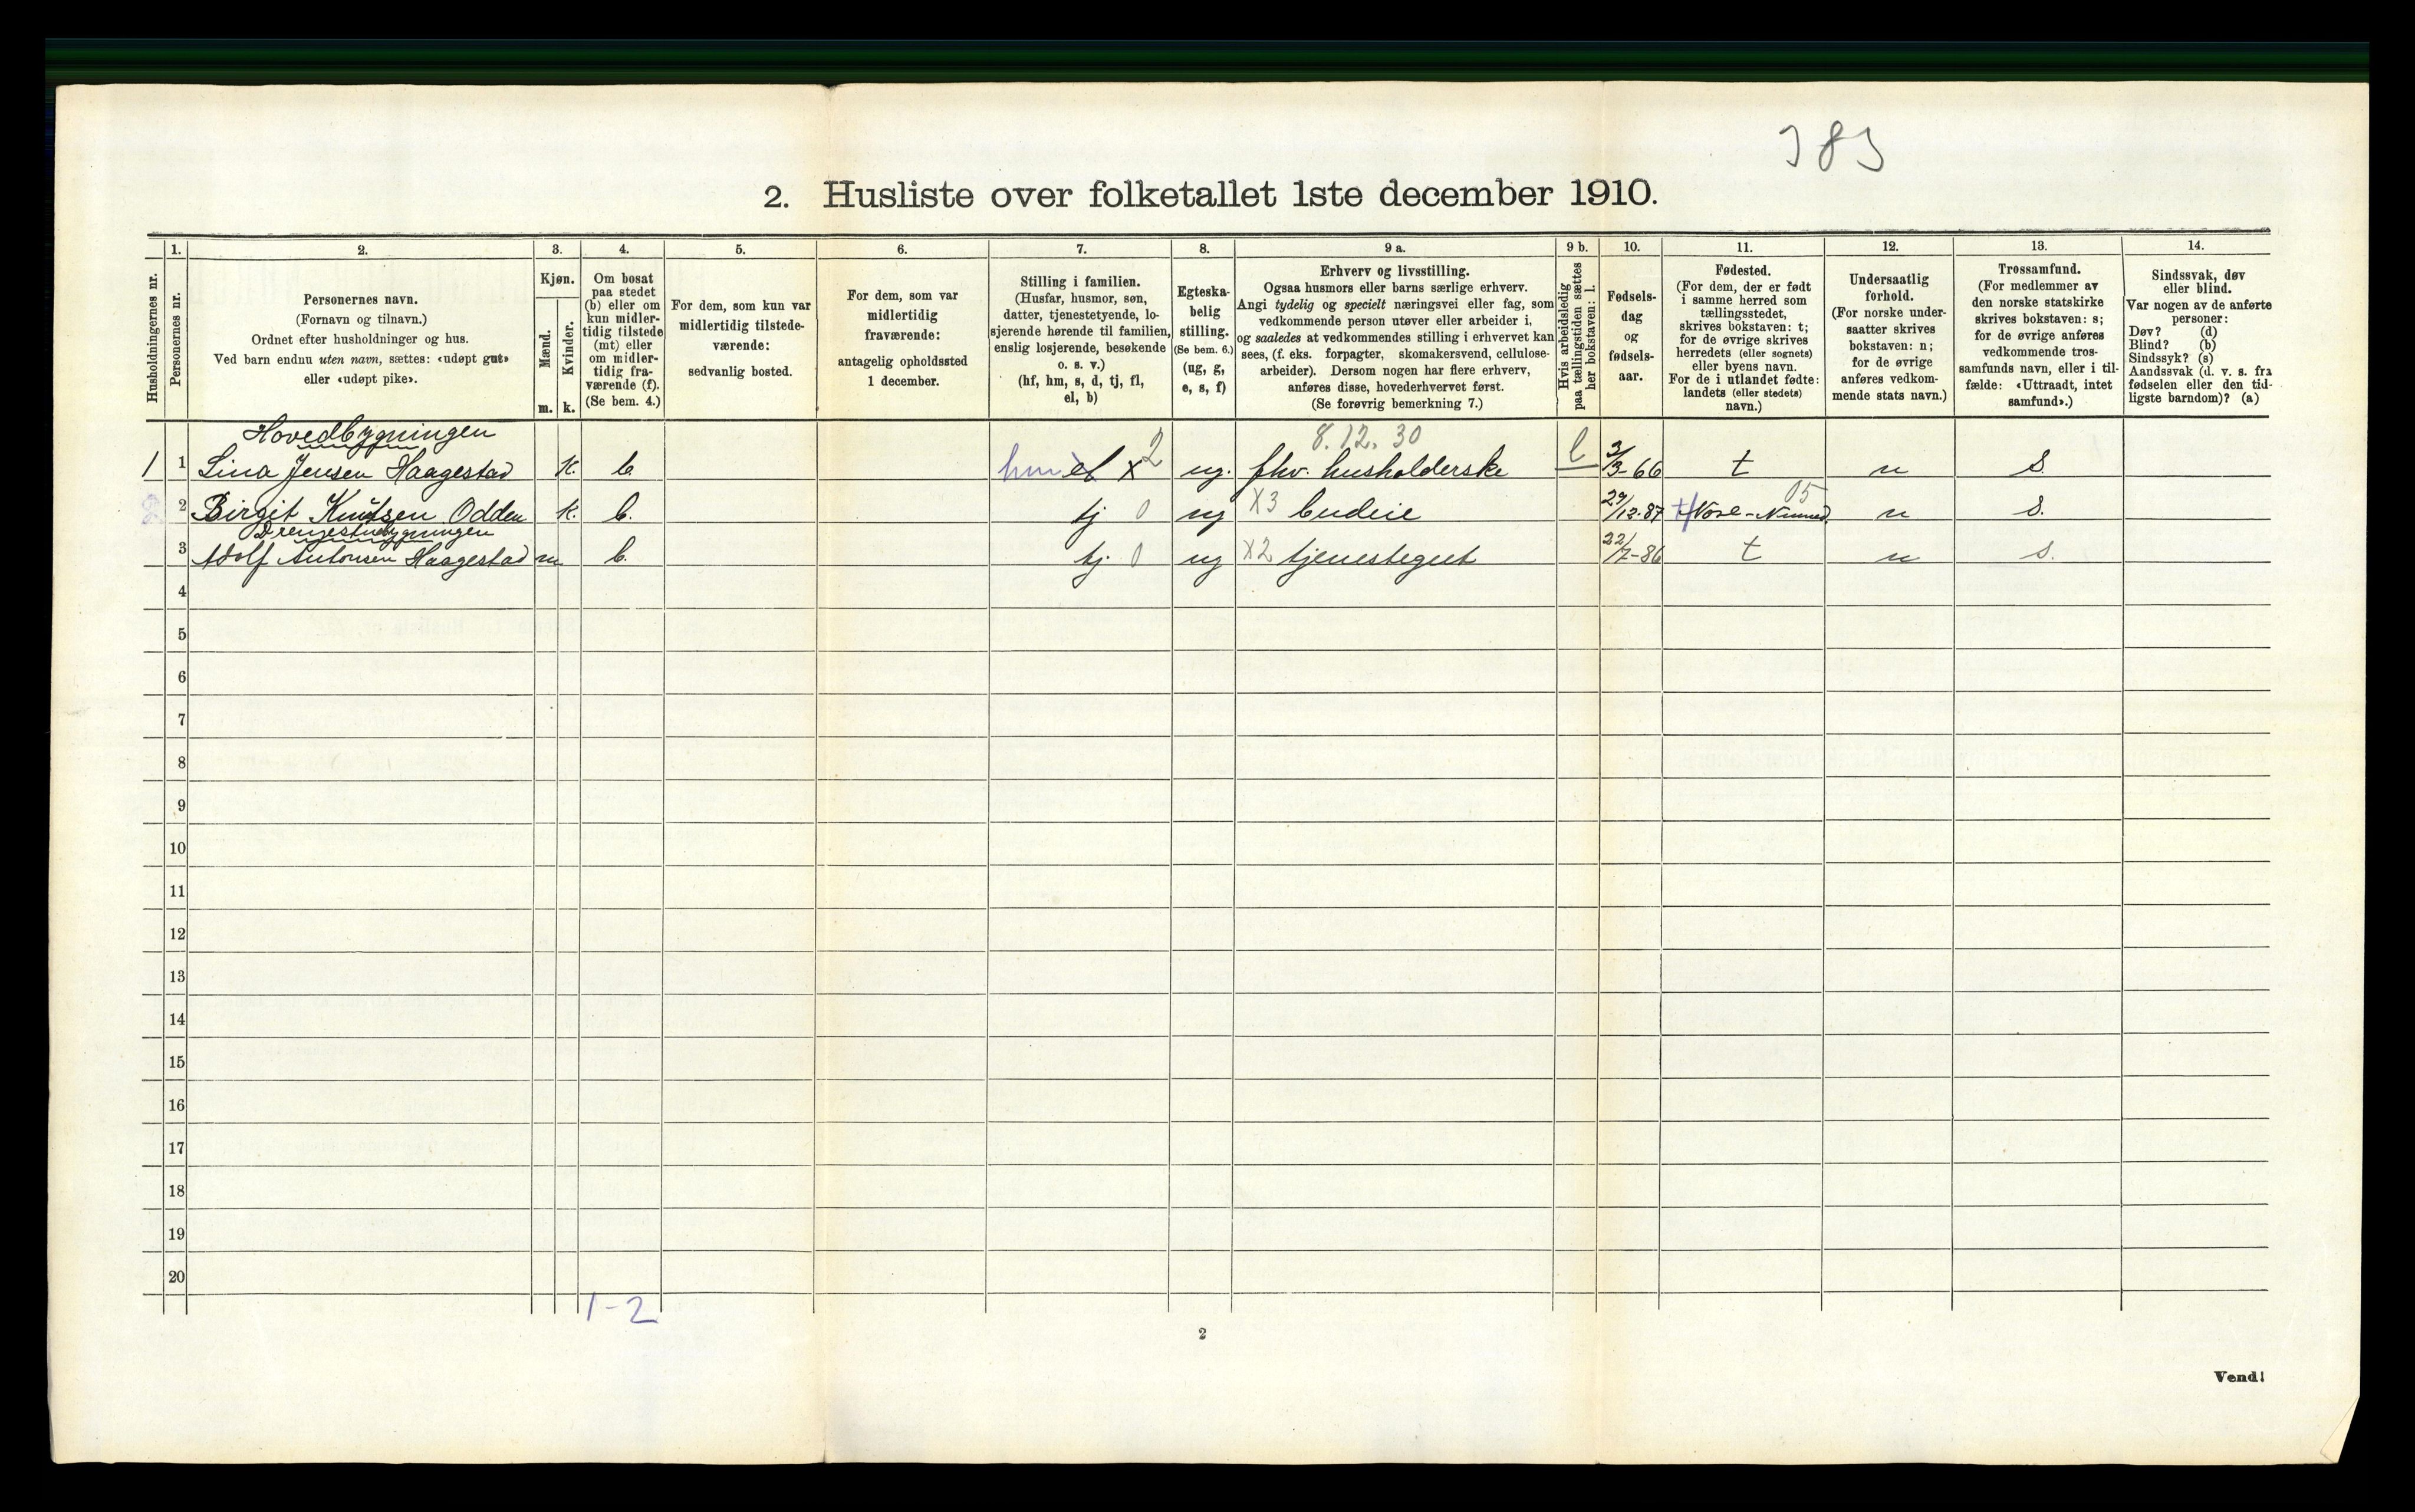 383
2. Husliste over folketallet 1ste december 1910.
Husholdningernes nr.
1.
Personernes nr.
2.
Personernes navn.
(Fornavn og tilnavn.)
Ordnet efter husholdninger og hus.
Ved barn endnu uten navn, sættes: «udøpt gut»
eller «udøpt pike».
3.
Kjøn.
Mænd.
m.
Kvinder.
k.
4.
Om bosat
paa stedet
(b) eller om
kun midler-
tidig tilstede
(mt) eller
om midler-
tidig fra-
værende (f).
(Se bem. 4.)
5.
For dem, som kun var
midlertidig tilstede-
værende:
sedvanlig bosted.
6.
For dem, som var
midlertidig
fraværende:
antagelig opholdssted
1 december.
7.
Stilling i familien.
(Husfar, husmor, søn,
datter, tjenestetyende, lo-
sjerende hørende til familien,
enslig losjerende, besøkende
o. s. v.)
(hf, hm, s, d, tj, fl,
el, b)
8.
Egteska-
belig
stilling.
(Se bem. 6.)
(ug, g,
e, s, f)
9 a.
Erhverv og livsstilling.
Ogsaa husmors eller barns særlige erhverv.
Angi tydelig og specielt næringsvei eller fag, som
vedkommende person utøver eller arbeider i,
og saaledes at vedkommendes stilling i erhvervet kan
sees, (f. eks. forpagter, skomakersvend, cellulose-
arbeider). Dersom nogen har flere erhverv,
anføres disse, hovederhvervet først.
(Se forøvrig bemerkning 7.)
9 b.
Hvis arbeidsledig
paa tællingstiden sættes
her bokstaven: l.
10.
Fødsels-
dag
og
fødsels-
aar.
11.
Fødested.
(For dem, der er født
i samme herred som
tællingsstedet,
skrives bokstaven: t;
for de øvrige skrives
herredets (eller sognets)
eller byens navn.
For de i utlandet fødte:
landets (eller stedets)
navn.)
12.
Undersaatlig
forhold.
(For norske under-
saatter skrives
bokstaven: n;
for de øvrige
anføres vedkom-
mende stats navn.)
13.
Trossamfund.
(For medlemmer av
den norske statskirke
skrives bokstaven: s;
for de øvrige anføres
vedkommende tros-
samfunds navn, eller i til-
fælde: «Uttraadt, intet
samfund».)
14.
Sindssvak, døv
eller blind.
Var nogen av de anførte
personer:
Døv? (d)
Blind? (b)
Sindssyk? (s)
Aandssvak (d. v. s. fra
fødselen eller den tid-
ligste barndom)? (a)
Hovedbygningen 8.12.30
1 1 Lina Jensen Haagestad k. b. hm el x 2 ug. fhv. husholderske l 3/3-66 t n s.
2 Birgit Knutsen Odden k. b. tj 0 ug x3 budeie 29/12-87 Nore-Numed. 05 n s.
Drengestubygningen
3 Adolf Antonsen Haagestad m b. tj. 0 ug x2 tjenestegut 22/7-86 t n s.
4
5
6
7
8
9
10
11
12
13
14
15
16
17
18
19
20
1-2
2
Vend!